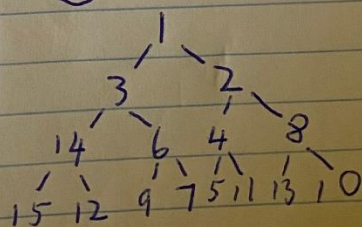 1
3 2
14 6 4 8
15 12 9 7 5 11 13 10